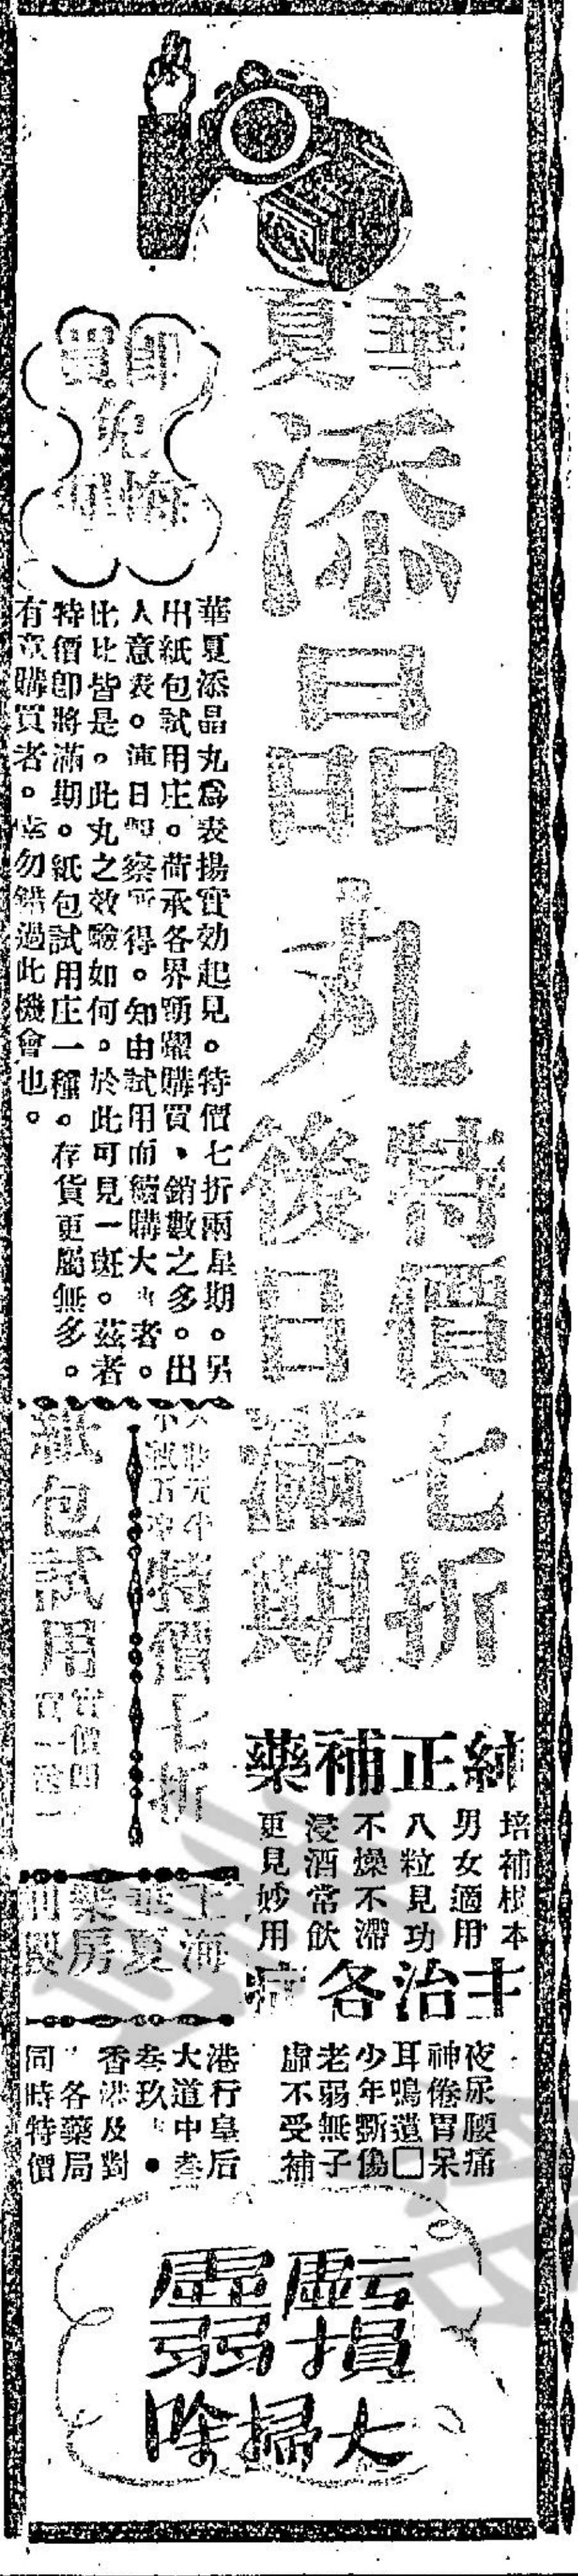 華夏
添晶丸
特價七折
後日滿期
即買
免悔
華夏添晶丸爲表揚實効起見。特價七折兩星期。另
出紙包試用庄。荷承各界踴躍購買、銷數之多。出
人意表。連日觀察所得。知由試用而續購大者。
比比皆是。此丸之效驗如何。於此可見一斑。茲者
特價即將滿期。紙包試用庄一種。存貨更屬無多。
有意購買者。幸勿錯過此機會也。
特價七折
紙包試用
純正補藥
培補根本
男女適用
八粒見功
不燥不滯
浸酒常飲
更見妙用
主治各症
夜尿腰痛
神倦胃呆
耳鳴遺□
少年斵傷
老弱無子
虛不受補
上海
華夏
藥房
製
港行皇后
大道中叁
叁玖
香港及對
各藥局
同時特價
虧損
虛弱
大掃除